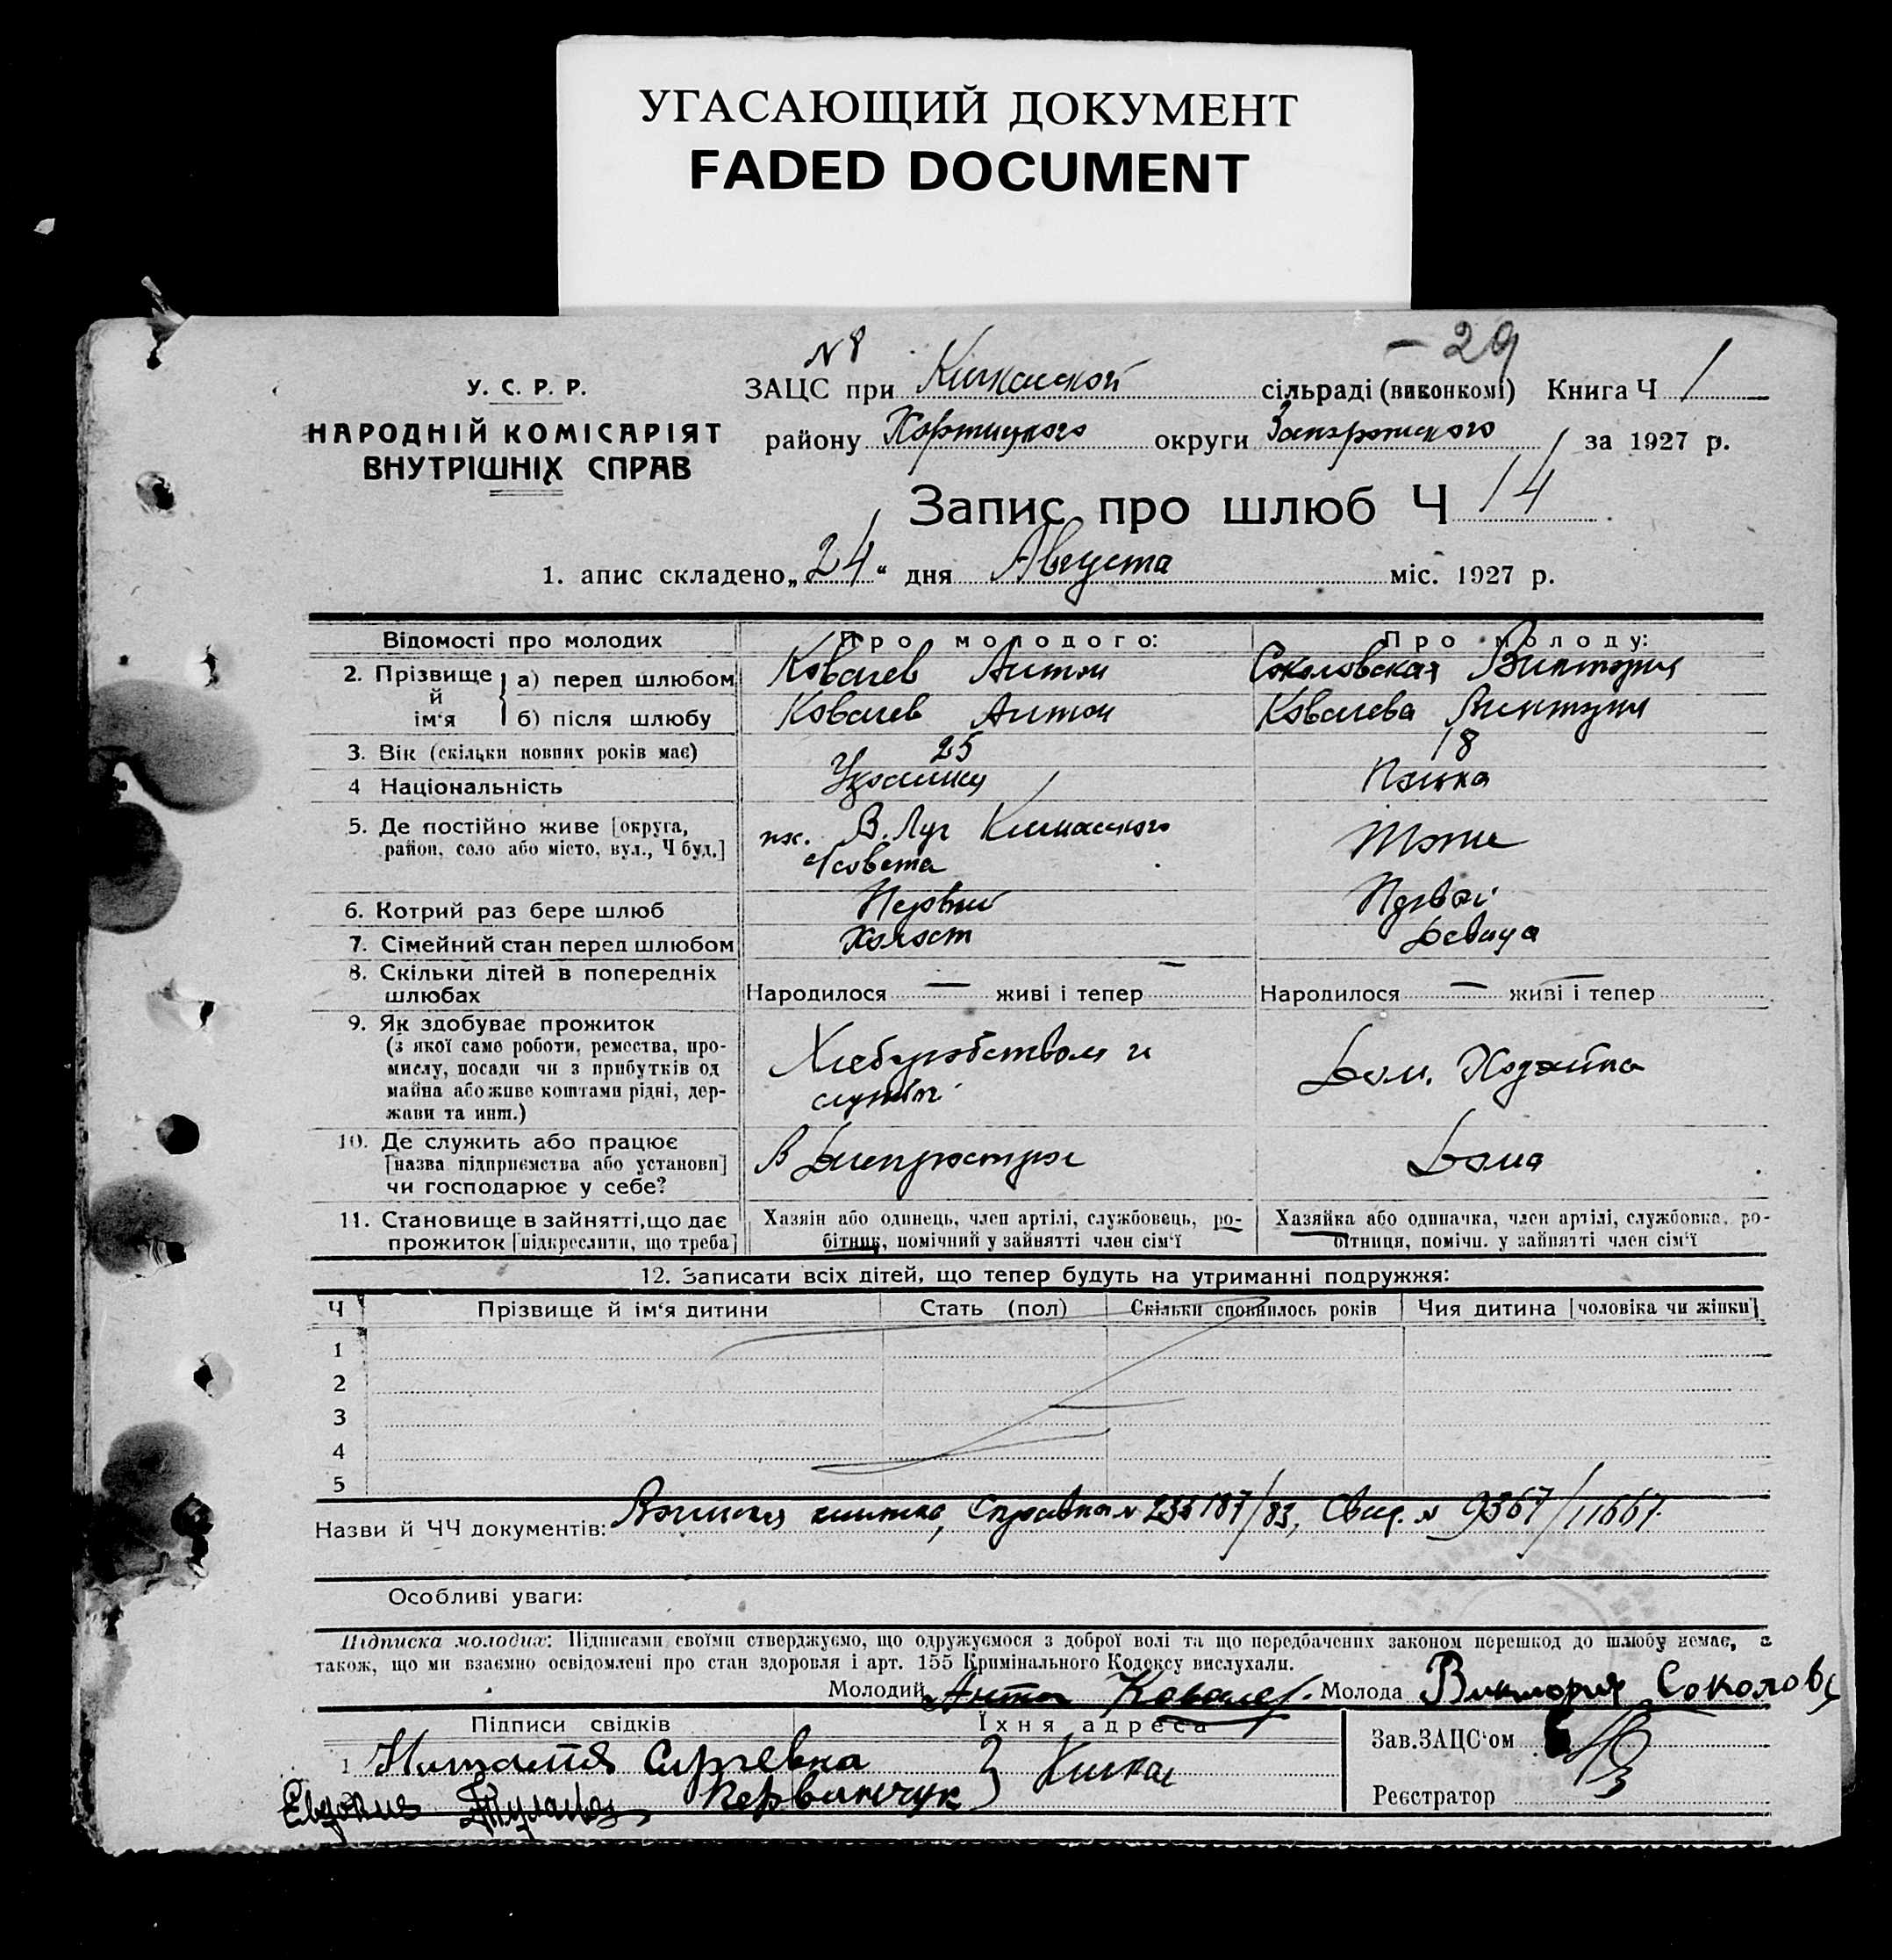 УГАСАЮЩИЙ ДОКУМЕНТ
FADED DOCUMENT
N 8
- 29
У. С. Р. Р.
НАРОДНІЙ КОМІСАРІЯТ
ВНУТРІШНІХ СПРАВ
ЗАЦС при Кичкасской сільраді (виконкомі) Книга Ч 1
району Хортицкого округи Запорожского за 1927 р.
Запис про шлюб Ч 14
1. апис складено „24“ дня Августа міс. 1927 р.
Відомості про молодих Про молодого: Про молоду:
2. Прізвище й ім‘я а) перед шлюбом Ковалев Антон Соколовская Виктория
б) після шлюбу Ковалев Антон Ковалева Виктория
3. Вік (скільки повних років має) 25 18
4 Національність Украинец Полька
5. Де постійно живе [округа, район, село або місто, вул., Ч буд.] В. Луг Кичкасского с/совета Тоже
6. Котрий раз бере шлюб Первый Первый
7. Сімейний стан перед шлюбом Холост Девица
8. Скільки дітей в попередніх шлюбах Народилося — живі і тепер — Народилося — живі і тепер —
9. Як здобуває прожиток
(з якої саме роботи, ремества, про-
мислу, посади чи з прибутків од
майна або живе коштами рідні, дер-
жави та инш.)
Хлеборобством и
Дом. Хозяйка
10. Де служить або працює
[назва підприємства або установи]
чи господарює у себе?
В Днепрострое Дома
11. Становище в зайнятті, що дає
прожиток [підкреслити, що треба]
Хазяін або одинець, член артілі, службовець, ро-
бітник, помічний у зайнятті член сім‘ї
Хазяйка або одиначка, член артілі, службовка, ро-
бітниця, помічн. у зайнятті член сім‘ї
12. Записати всіх дітей, що тепер будуть на утриманні подружжя:
Ч Прізвище й ім‘я дитини Стать (пол) Скільки сповнилось років Чия дитина [чоловіка чи жінки]
1
2
3
4
5
Назви й ЧЧ документів: книжка, Справка № 235187/83, Свид. № 9367/11667.
Особливі уваги:
Підписка молодих: Підписами своїми стверджуємо, що одружуємося з доброї волі та що передбачених законом перешкод до шлюбу немає, а
також, що ми взаємно освідомлені про стан здоровля і арт. 155 Кримінального Кодексу вислухали.
Молодий Антон Ковалев. Молода Виктория Соколовс
Підписи свідків Їхня адреса
Зав. ЗАЦС‘ом
1 Наталія Сергевна Кичкас
Первинчук
Евдокия
Реєстратор